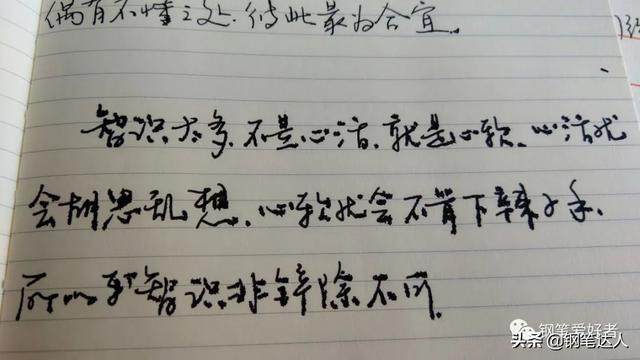 偶有不懂之处.彼此最为合宜。
智识太多.不是心活.就是心软.心活就
会胡思乱想.心软就会不肯下辣手.
所以智识非铲除不可.
钢笔爱好者
头条 @钢笔达人